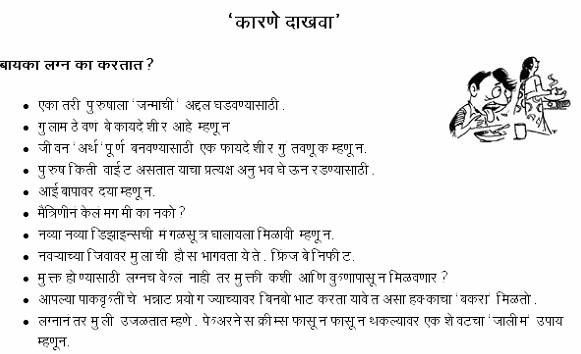 ‘कारणे दाखवा’
बायका लग्न का करतात ?
• एका तरी पुरुषाला ‘जन्माची‘ अद्दल घडवण्यासाठी .
• गुलाम ठेवण बेकायदेशीर आहे म्हणून
• जीवन ‘अर्थ‘पूर्ण बनवण्यासाठी एक फायदेशीर गुंतवणूक म्हणून.
• पुरुष किती वाईट असतात याचा प्रत्यक्ष अनुभव घेऊन रडण्यासाठी .
• आई बापावर दया म्हणून.
• मैत्रिणींनं केलं मग मी का नको ?
• नव्या नव्या डिझाइन्सची मंगळसूत्र घालायला मिळावी म्हणून.
• नवऱ्याच्या जिवावर मुलाची हौस भागवता येते . फ्रिंज बेनिफीट.
• मुक्त होण्यासाठी लग्नच केलं नाही तर मुक्ती कशी आणि कुणापासून मिळवणार ?
• आपल्या पाककृतींचे भन्नाट प्रयोग ज्याच्यावर बिनबोभाट करता यावेत असा हक्काचा ‘बकरा‘ मिळतो .
• लग्नानंतर मुली उजळतात म्हणे . फेअरनेस क्रीम्स फासून फासून थकल्यावर एक शेवटचा ‘जालीम‘ उपाय
म्हणून.